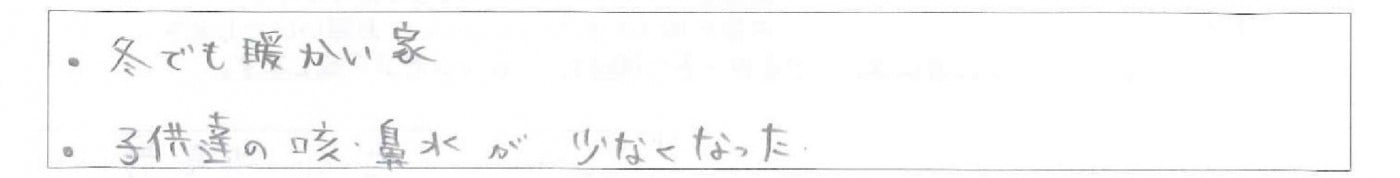 ・冬でも暖かい家
・子供達の咳・鼻水が 少なくなった.